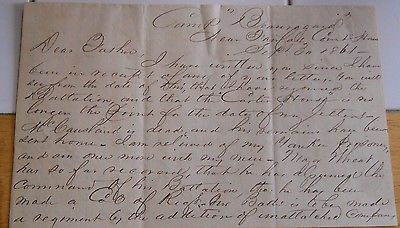 Camp "Beauregard"
Near Fairfax Court House
Sept 30 1861
Dear Father, I have written you since I have
been in receipt of any of your letters. You will
see from the date of this that I have rejoined the
Battalion, and that the Carter House is no
longer the point for the date of my letters
is dead, and his remains have been
sent home. I am relieved of my Yankee prisoners,
and am once more with my men. Major Wheat
has so far recovered, that he has resumed the
command of his Battalion, tho' he has been
made a Col of Reg't. Our Batt: is to be made
a regiment by the addition of unattached company,